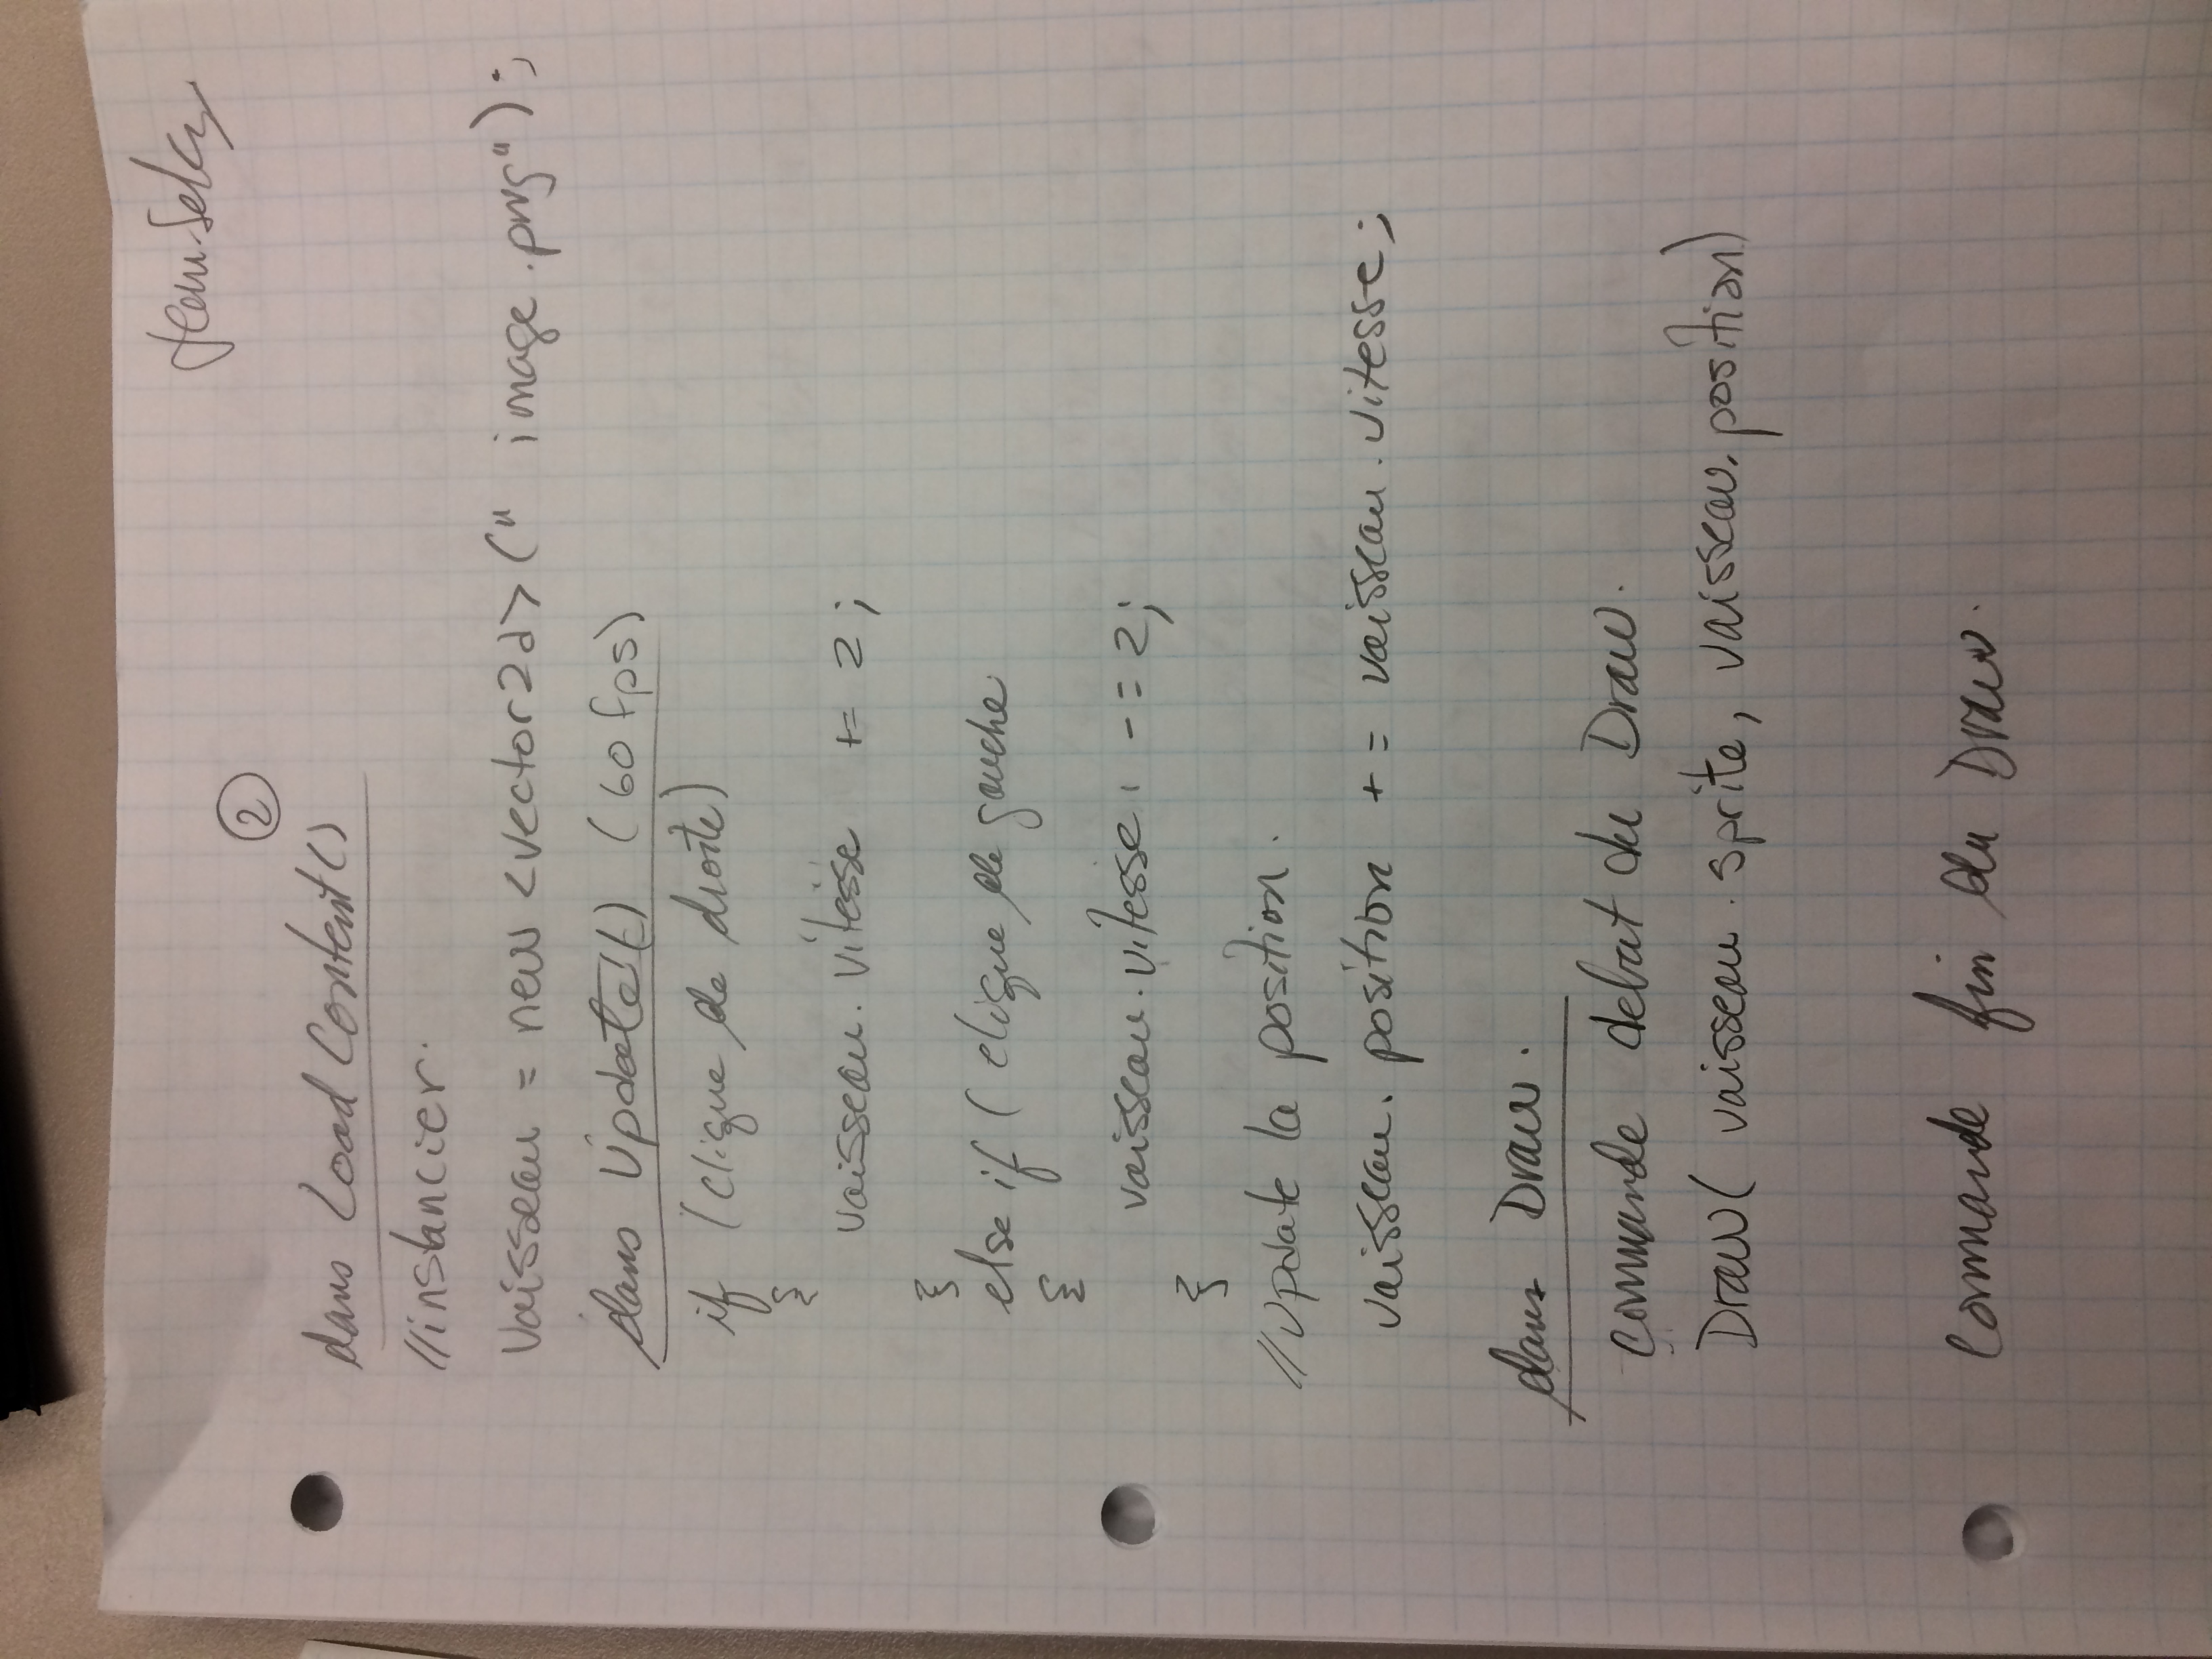 ②
dans Load Content()
//instancier.
vaisseau = new <vector2d>(" image.png");
dans Update() (60 fps)
if (clique de droite)
{
vaisseau. vitesse += 2;
}
else if ( clique de gauche
{
vaisseau. vitesse. -= 2;
}
//Update la position.
vaisseau. position += vaisseau. vitesse;
dans Draw.
commande debut du Draw.
Draw( vaisseau. sprite, vaisseau. position)
Commande fin du Draw.